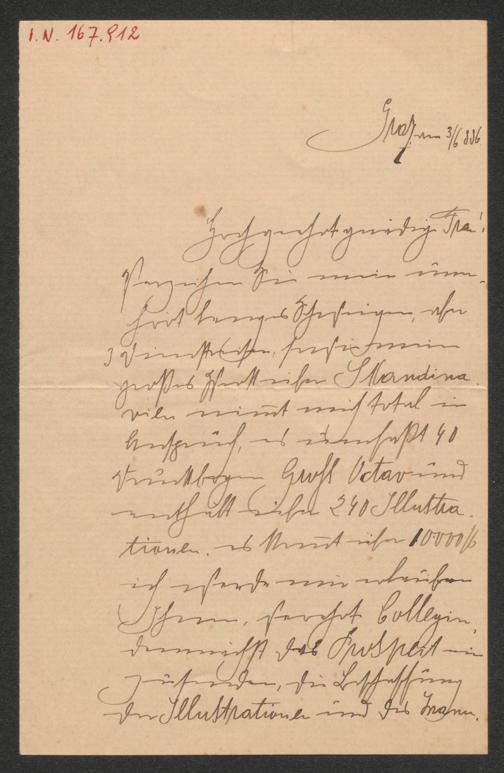 I.N. 167.912
Graz, am 3/6 886
Hochgeehrte gnädige Frau!
Verzeihen Sie mein uner-
hört langes Schweigen, aber
mein
großes Werk über Skandina-
vien nimmt mich total in
Anspruch, es umfaßt 40
Druckbogen Groß Octav und
enthält über 240 Illustra-
tionen, es kommt über 10000 f
ich werde mir erlauben
Ihnen, verehrte Collegin,
demnächst das Prospect ein-
zusenden, die Beschaffung
der Illustrationen und des